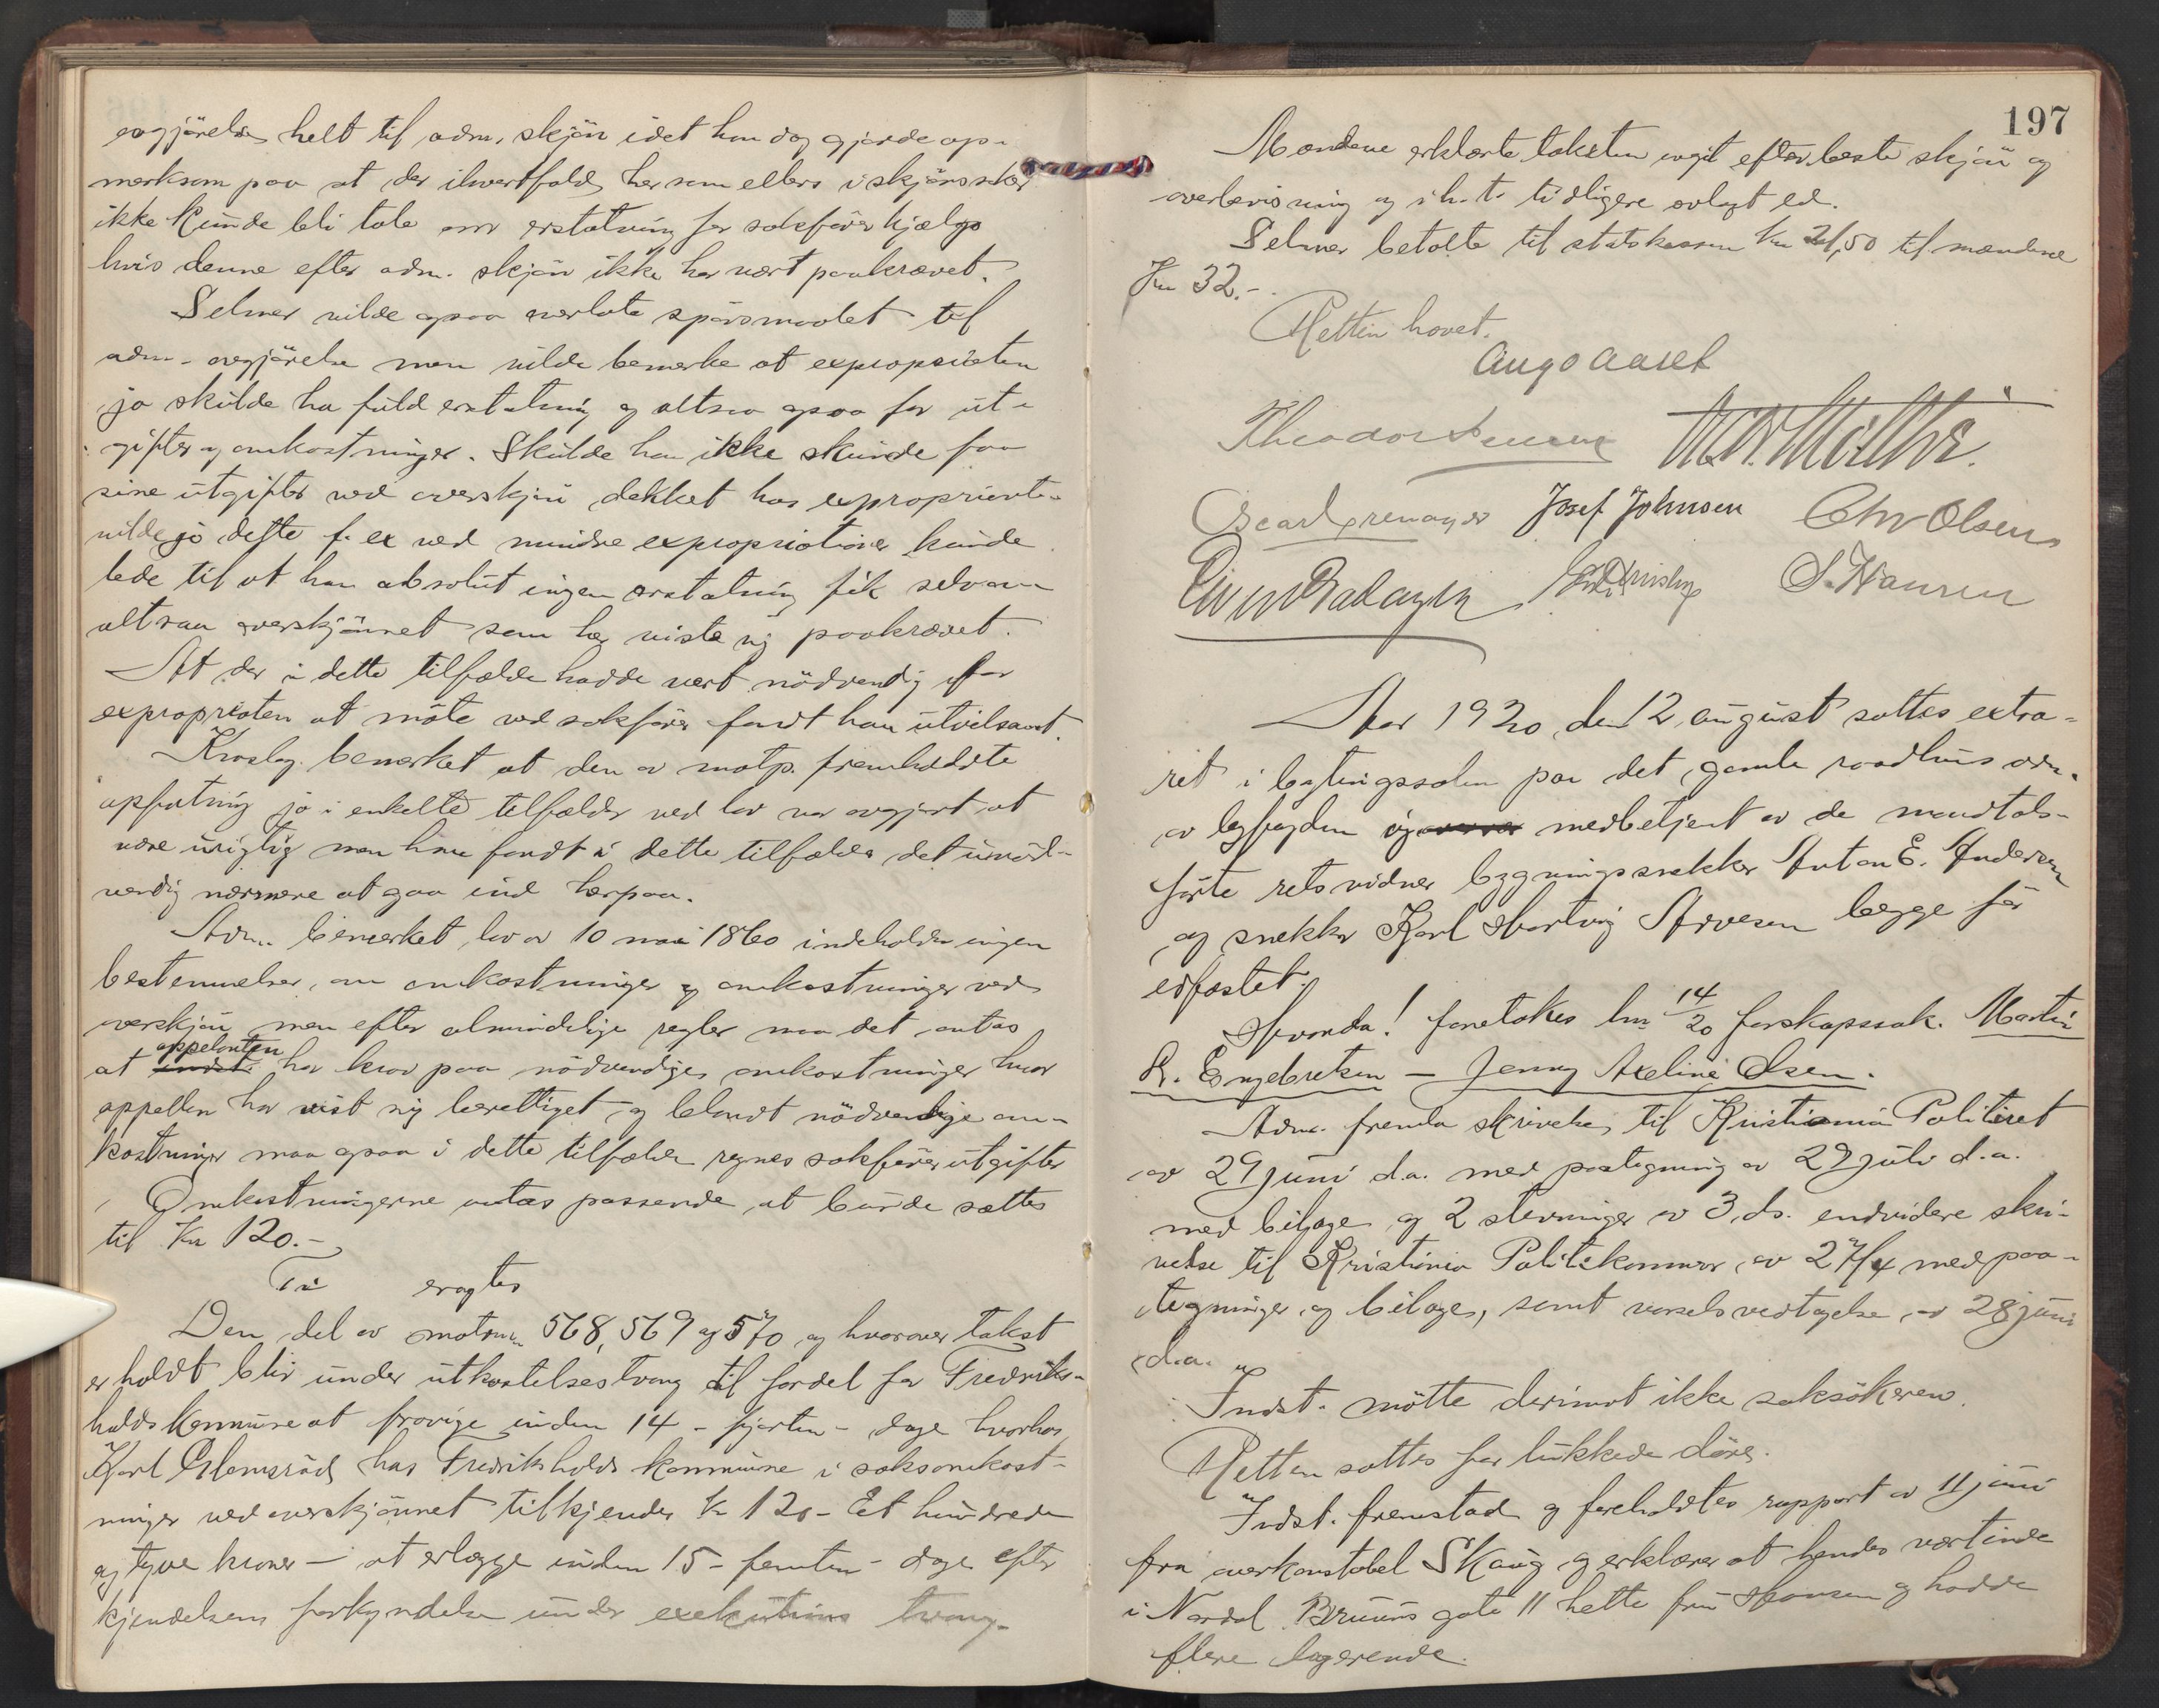 avgjörelse helt til adm. skjön idet han dog gjorde op-
merksom paa at der ihvertfald her som ellers i skjönssaker
ikke kunde bli tale om erstatning for sakförerhjælp
hvis denne efter adm. skjön ikke har vært paakrævet.
Selmer vilde ogsaa overlate spörsmaalet til
adm. avgjörelse men vilde bemerke at expropriaten
jo skulde ha fuld erstatning og altsaa ogsaa for ut-
gifter og omkostninger. Skulde han ikke kunde faa
sine utgifter ved overskjön dekket hos expropriante
vilde jo dette f. ex ved mindre expropriationer kunde
lede til at han absolut ingen erstatning fik selvom
altsaa overskjönnet som her viste sig paakrævet.
At der i dette tilfælde hadde vært nödvendig for
expropriaten at möte ved sakförer fandt han utvilsomt.
Kroslag bemerket at den av motp. fremholdte
opfatning jo i enkelte tilfælder ved lov var avgjort at
være urigtig men han fandt i dette tilfælde det unöd-
vendig nærmere at gaa ind herpaa.
Adm. bemerket, lov av 10 mai 1860 indeholder ingen
bestemmelser om omkostninger og omkostninger ved
overskjön men efter almindelige regler maa det antas
at appelanten har krav paa nödvendige omkostninger hvor
appellen har vist sig berettiget og blandt nödvendige om-
kostninger maa ogsaa i dette tilfælde regnes sakförerutgifter
Omkostningerne antas passende at burde sættes
til Kr 120.-
Ti eragtes
Den del av matrnr 568, 569 og 570 og hvorover takst
er holdt blir under utkastelsestvang til fordel for Fredriks-
halds Kommune at fravige inden 14 - fjorten - dage hvorhos
Karl Glomsröd hos Fredrikshalds kommune i saksomkost-
ninger ved overskjönnet tilkjendes kr 120 - Et hundrede
og tyve kroner - at erlægge inden 15 - femten - dage efter
kjendelsens forkyndelse under exekutions tvang.
197
Mændene erklærte taksten avgit efter beste skjön og
overbevisning og i h. t. tidligere avlagt ed.
Selmer betalte til statskassen Kr 21,50 til mændene
Kr 32.-
Retten hævet.
Aug Aaset
Theodor
Oscar Josef Johnsen Chr Olsen
S. Hansen
Aar 1920 den 12 august sattes extra-
ret i bytingssalen paa det gamle raadhus adm.
av byfogden og medbetjent av de mandtals-
förte retsvidner bygningssnekker Anton E. Andersen
og snekker Karl Hartvig Arvesen begge för
edfæstet.
Hvorda! foretokes lnr 14/20 farskapssak. Martin
R. Engebretsen - Jenny Axeline Olsen.
Adm. fremla skrivelse til Kristiania Politiret
av 29 juni d.a. med paategning av 29 juli d.a.
med bilage og 2 stevninger av 3. ds. endvidere skri-
velse til Kristiania Politikammer av 27/4 med paa-
tegninger og bilages, samt varselsvedtagelse av 28 juni
d.a.
Indst. mötte derimot ikke saksökeren.
Retten sattes for lukkede döre.
Indst. fremstod og foreholdtes rapport av 11 juni
fra overkonstabel Skaug og erklærer at hendes værtinde
i Nordal Bruuns gate 11 hette fru Hansen og hadde
flere logerende.